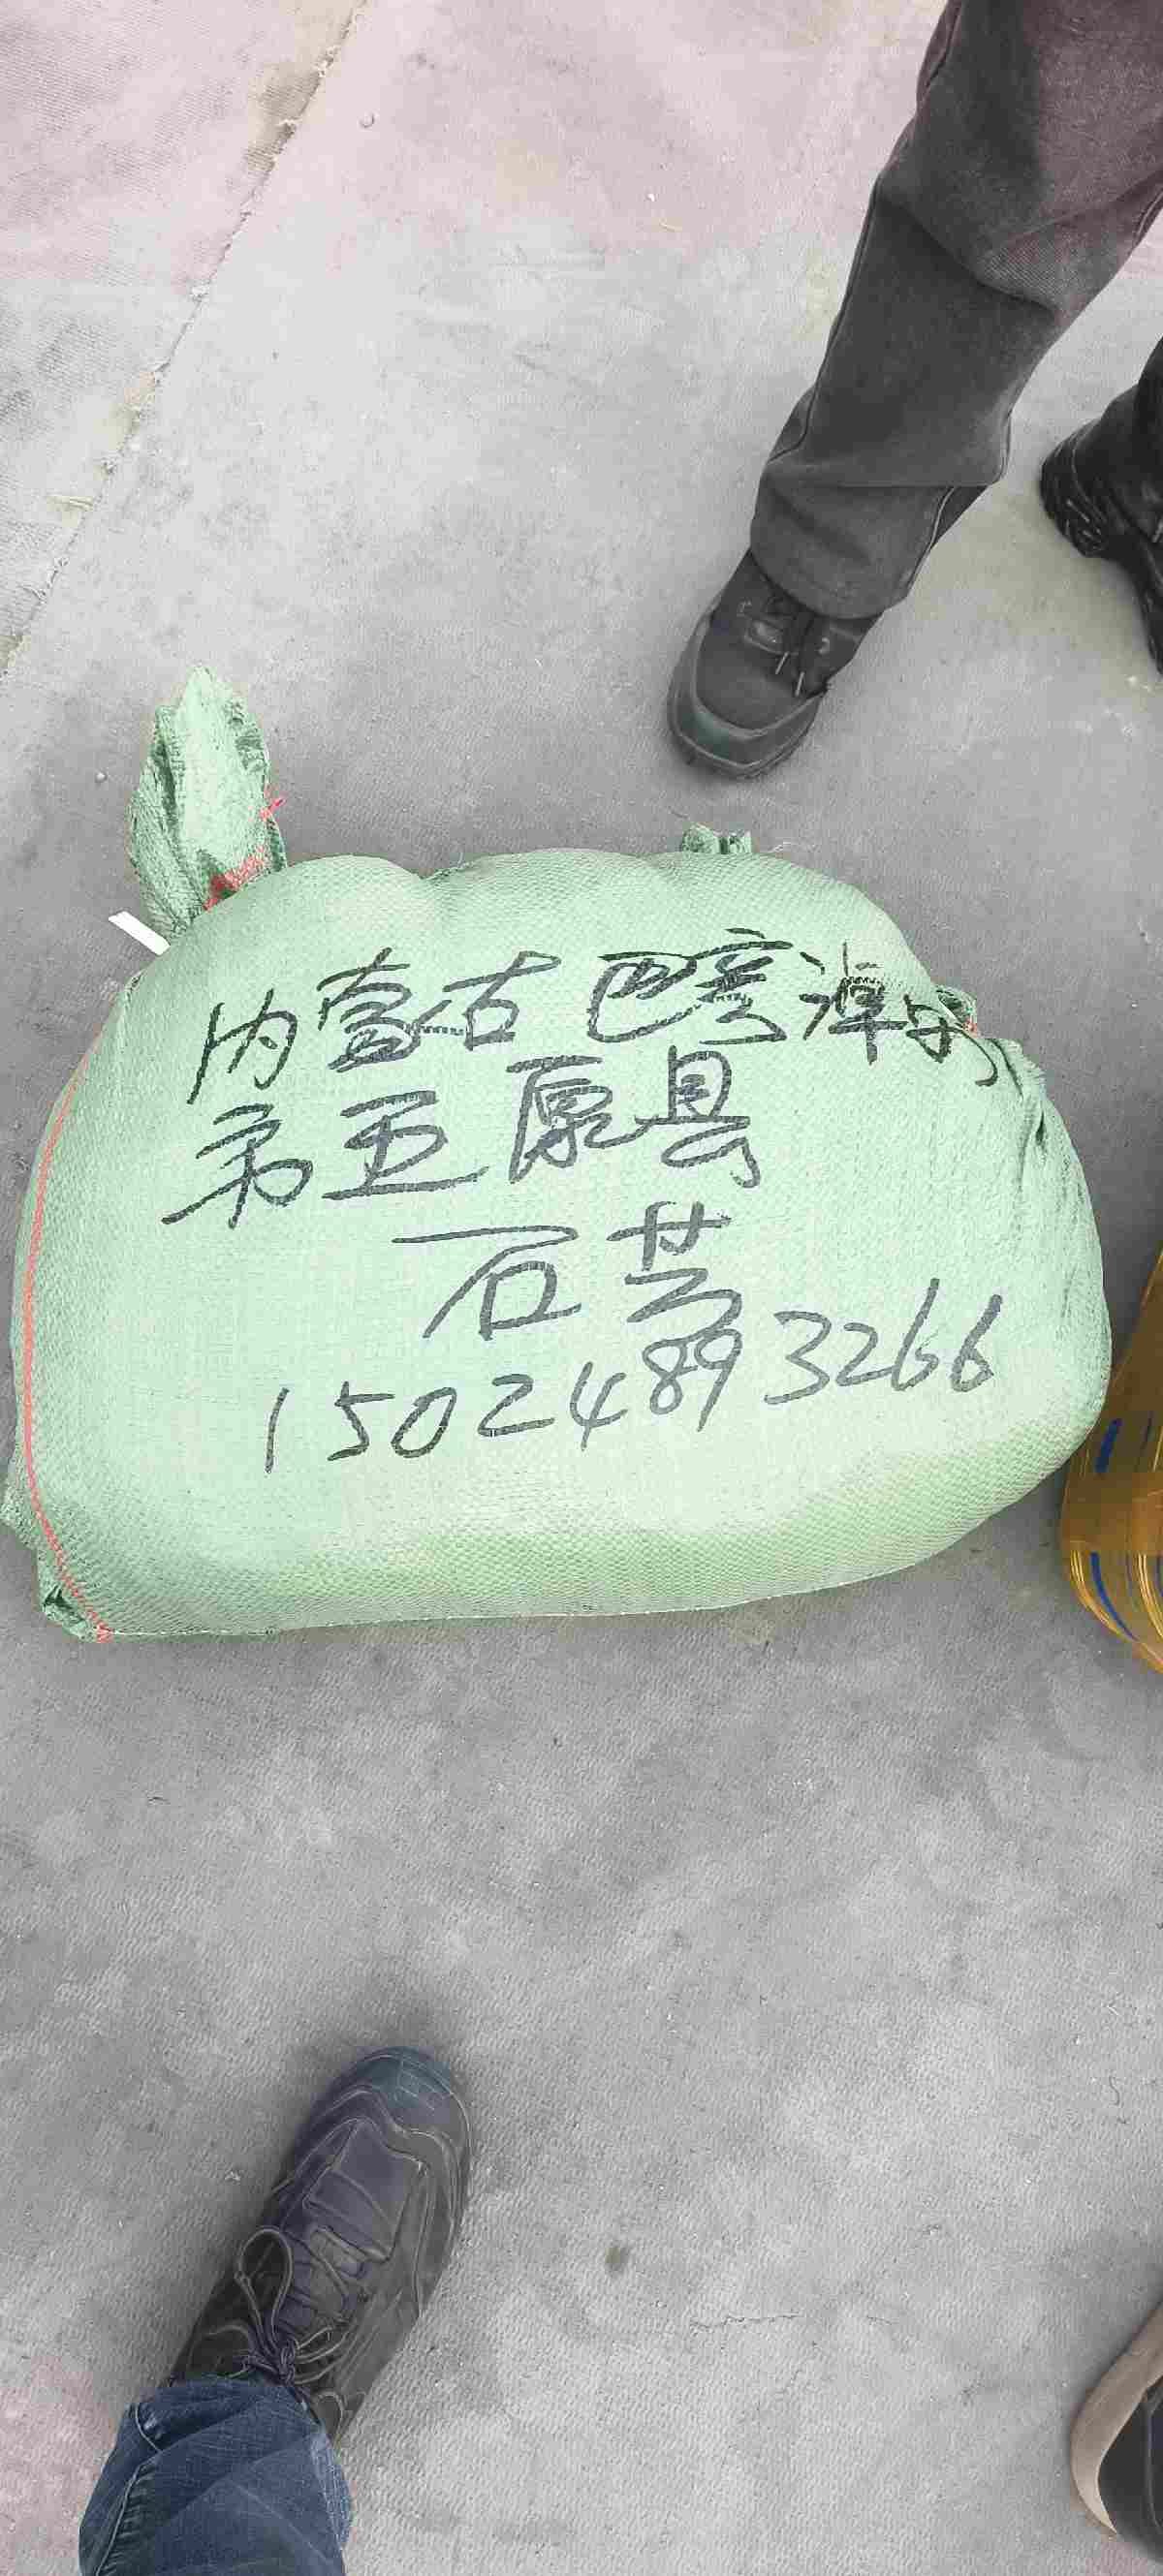 内蒙古巴彦淖尔
市五原县
石芸
15024893266